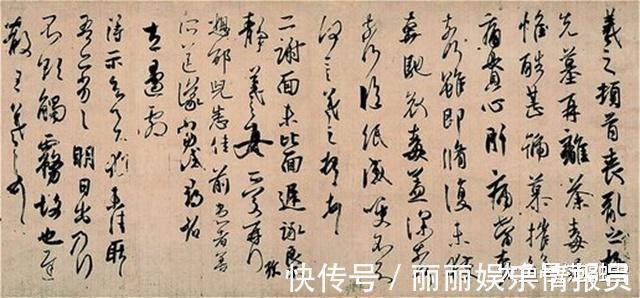 羲之頓首喪亂之極
先墓再離荼毒追
惟酷甚號慕摧絕
痛貫心肝痛當奈
奈何雖即脩復未
奔馳哀毒益深奈何
奈何臨紙感哽不知
何言羲之頓首
二謝面未比面遲詠良
靜羲之女愛再拜
想邵兒悉佳前患者善
所送議
左邊劇
得示知足下猶未佳耿
吾亦劣明日出乃行
不欲觸霧故也遲
散王羲之頓首
快传号 / 丽丽娱乐情报员